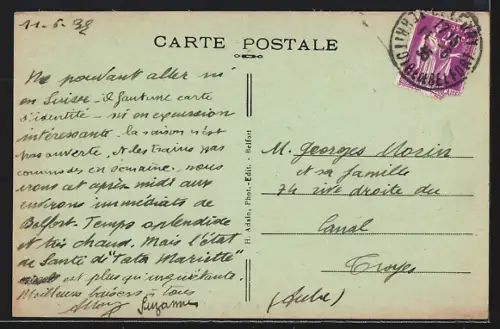 11-6-38
CARTE POSTALE
Ne pouvant aller ni
en Suisse - il faut une carte
d'identité - ni en excursion
intéressante la saison n'est
pas ouverte, et les trains pas
commodes en semaine, nous
irons cet après midi aux
environs immédiats de
Belfort - Temps splendide
et très chaud. Mais l'état
de Santé d'"Tata Mariette"
est plus qu'inquiétant.
Meilleurs baisers à tous
Suzanne
H. Adale, Phot.-Edit. - Belfort
M. Georges Morin
et sa famille
74 rive droite du
Canal
Troyes
(Aube)